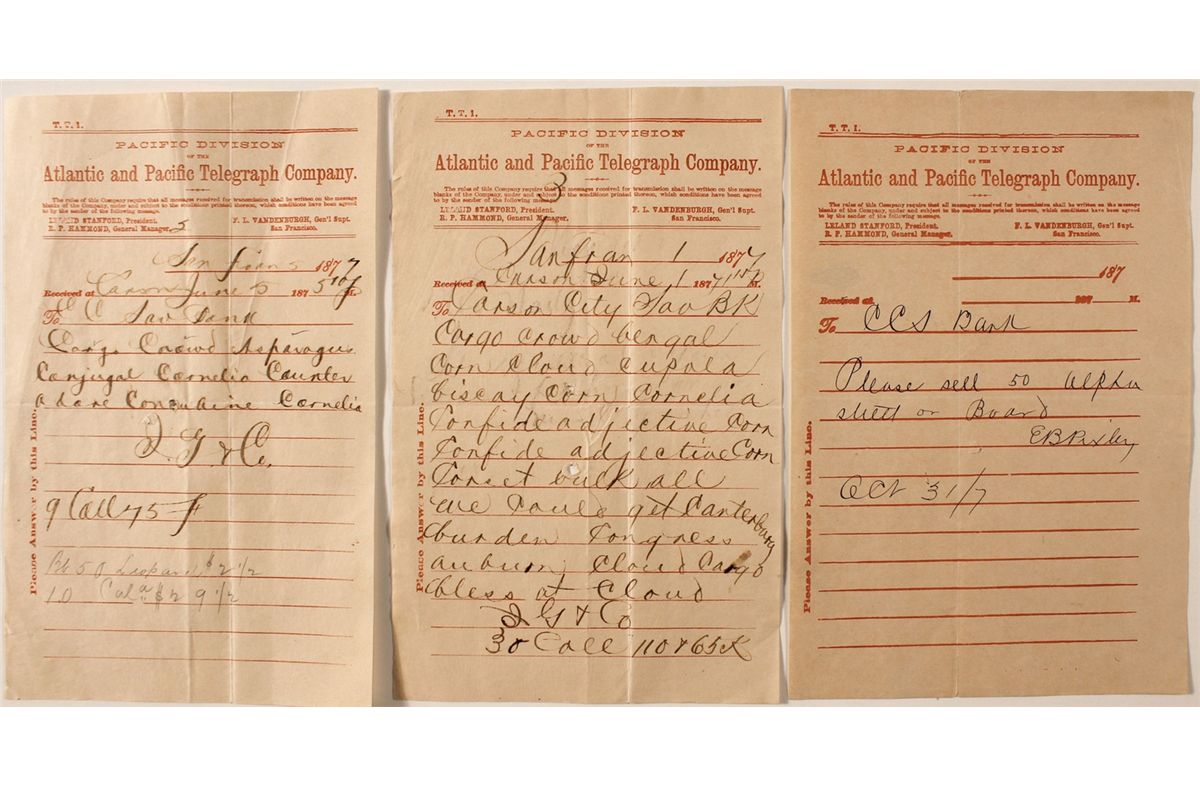 T. T. 1.
PACIFIC DIVISION
OF THE
Atlantic and Pacific Telegraph Company.
The rules of this Company require that all messages received for transmission shall be written on the message
blanks of the Company, under and subject to the conditions printed thereon, which conditions have been agreed
to by the sender of the following message.
LELAND STANFORD, President.
F. L. VANDENBURGH, Gen'l Supt.
R. P. HAMMOND, General Manager.
San Francisco.
5
San fran 5 1877
Received at Carson June 5 187 M.
To C C Sav Bank
Cargo Crowd Asparagus
Conjugal Cornelia Counter
adore Concubine Cornelia
& Co.
9 Coll 75
Please Answer by this Line.
50 Leopard $2 1/2
10 Cala $29 1/2
T. T. 1.
PACIFIC DIVISION
OF THE
Atlantic and Pacific Telegraph Company.
The rules of this Company require that all messages received for transmission shall be written on the message
blanks of the Company, under and subject to the conditions printed thereon, which conditions have been agreed
to by the sender of the following message.
3
LELAND STANFORD, President.
F. L. VANDENBURGH, Gen'l Supt.
R. P. HAMMOND, General Manager.
San Francisco.
Sanfran 1 1877
Received at Carson June 1 187 M.
To Carson City Sav BK
Cargo crowd bengal
Corn Cloud cupola
biscay Corn Cornelia
Confide adjective Corn
Confide adjective Corn
Corset bulk all
we could get Canterbury
burden Congress
auburn Cloud Cargo
bless at Cloud
& Co
30 Coll 110 & 65
Please Answer by this Line.
T. T. 1.
PACIFIC DIVISION
OF THE
Atlantic and Pacific Telegraph Company.
The rules of this Company require that all messages received for transmission shall be written on the message
blanks of the Company, under and subject to the conditions printed thereon, which conditions have been agreed
to by the sender of the following message.
LELAND STANFORD, President.
F. L. VANDENBURGH, Gen'l Supt.
R. P. HAMMOND, General Manager.
San Francisco.
187
Received at 187 M.
To CCS Bank
Please sell 50 Alpha
short on Board
EB Pixley
Oct 31/7
Please Answer by this Line.